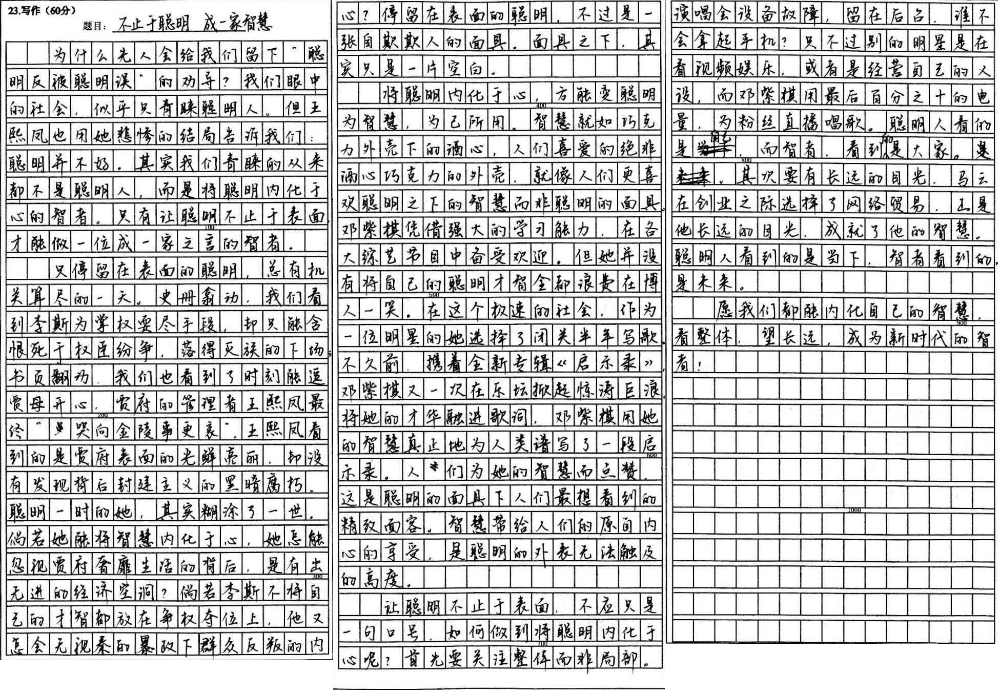 23.写作(60分)
题目: 不止于聪明 成一家智慧
为什么先人会给我们留下“聪
明反被聪明误”的劝导?我们眼中
的社会,似乎只青睐聪明人。但王
熙凤也用她悲惨的结局告诉我们:
聪明并不好。其实我们青睐的从来
都不是聪明人,而是将聪明内化于
心的智者。只有让聪明不止于表面
才能做一位成一家之言的智者。
100
只停留在表面的聪明,总有机
关算尽的一天。史册翕动,我们看
到李斯为掌权耍尽手段,却只能含
恨死于权臣纷争,落得灭族的下场。
书页翻动,我们也看到了时刻能逗
贾母开心,贾府的管理者王熙凤最
200
终“哭向金陵事更哀”。王熙凤看
到的是贾府表面的光鲜亮丽,却没
有发现背后封建主义的黑暗腐朽。
聪明一时的她,其实糊涂了一世。
倘若她能将智慧内化于心,她怎能
忽视贾府奢靡生活的背后,是有出
300
无进的经济空洞?倘若李斯不将自
己的才智都放在争权夺位上,他又
怎会无视秦的暴政下群众反叛的内
心?停留在表面的聪明,不过是一
张自欺欺人的面具。面具之下,其
实只是一片空白。
将聪明内化于心,方能变聪明
400
为智慧,为己所用。智慧就如巧克
力外壳下的酒心,人们喜爱的绝非
酒心巧克力的外壳,就像人们更喜
欢聪明之下的智慧而非聪明的面具。
邓紫棋凭借强大的学习能力,在各
大综艺节目中备受欢迎。但她并没
有将自己的聪明才智全都浪费在博
500
人一笑。在这个极速的社会,作为
一位明星的她选择了闭关半年写歌
不久前,携着全新专辑《启示录》,
邓紫棋又一次在乐坛掀起惊涛巨浪
将她的才华融进歌词,邓紫棋用她
的智慧真正地为人类谱写了一段启
600
示录。人们为她的智慧而点赞,
这是聪明的面具下人们最想看到的
精致面容。智慧带给人们的原自内
心的享受,是聪明的外表无法触及
的高度。
让聪明不止于表面,不应只是
一句口号,如何做到将聪明内化于
心呢?首先要关注整体而非局部。
演唱会设备故障,留在后台,谁不
会拿起手机?只不过别的明星是在
看视频娱乐,或者是经营自己的人
设,而邓紫棋用最后百分之十的电
量,为粉丝直播唱歌。聪明人看的
是自己,而智者,看到的是大家。
800
其次要有长远的目光,马云
在创业之际选择了网络贸易,正是
他长远的目光,成就了他的智慧。
聪明人看到的是当下,智者看到的,
是未来。
愿我们都能内化自己的智慧,
900
看整体,望长远,成为新时代的智
者!
1000